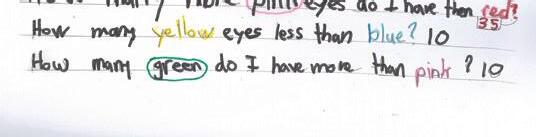 eyes do I have then red?
35
How many yellow eyes less than blue? 10
How many green do I have more than pink? 10